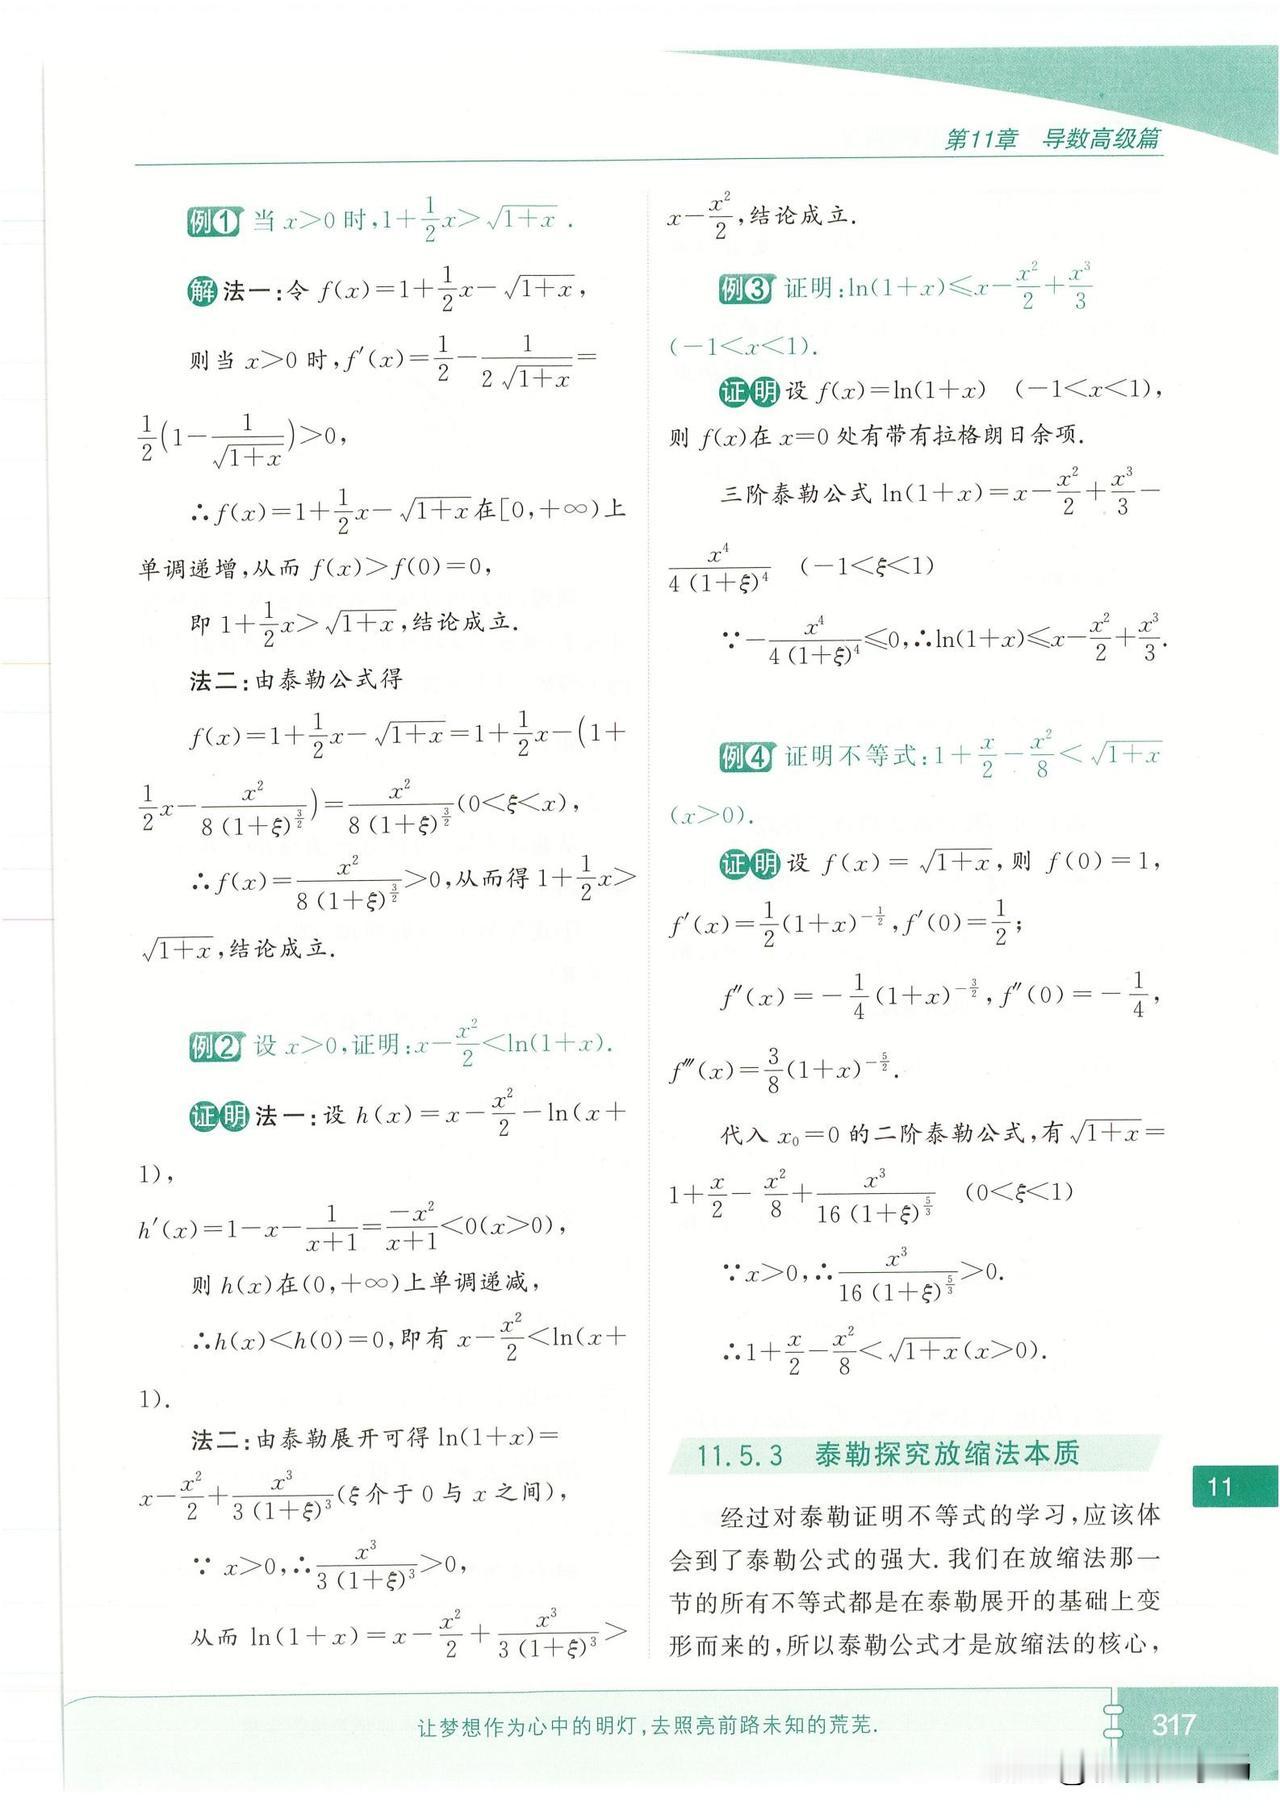 第11章 导数高级篇
例1 当 x>0 时,1+\frac{1}{2}x>\sqrt{1+x}.
解 法一:令 f(x)=1+\frac{1}{2}x-\sqrt{1+x},
则当 x>0 时,f'(x)=\frac{1}{2}-\frac{1}{2\sqrt{1+x}}=
\frac{1}{2}(1-\frac{1}{\sqrt{1+x}})>0,
∴f(x)=1+\frac{1}{2}x-\sqrt{1+x}在[0,+∞)上
单调递增,从而 f(x)>f(0)=0,
即 1+\frac{1}{2}x>\sqrt{1+x},结论成立.
法二:由泰勒公式得
f(x)=1+\frac{1}{2}x-\sqrt{1+x}=1+\frac{1}{2}x-(1+
\frac{1}{2}x-\frac{x^2}{8(1+ξ)^{\frac{3}{2}}})=\frac{x^2}{8(1+ξ)^{\frac{3}{2}}}(0<ξ<x),
∴f(x)=\frac{x^2}{8(1+ξ)^{\frac{3}{2}}}>0,从而得 1+\frac{1}{2}x>
\sqrt{1+x},结论成立.
例2 设 x>0,证明:x-\frac{x^2}{2}<ln(1+x).
证明 法一:设 h(x)=x-\frac{x^2}{2}-ln(x+
1),
h'(x)=1-x-\frac{1}{x+1}=\frac{-x^2}{x+1}<0(x>0),
则 h(x)在(0,+∞)上单调递减,
∴h(x)<h(0)=0,即有 x-\frac{x^2}{2}<ln(x+
1).
法二:由泰勒展开可得 ln(1+x)=
x-\frac{x^2}{2}+\frac{x^3}{3(1+ξ)^3}(ξ介于 0 与 x 之间),
∵ x>0,∴\frac{x^3}{3(1+ξ)^3}>0,
从而 ln(1+x)=x-\frac{x^2}{2}+\frac{x^3}{3(1+ξ)^3}>
x-\frac{x^2}{2},结论成立.
例3 证明:ln(1+x)≤x-\frac{x^2}{2}+\frac{x^3}{3}
(-1<x<1).
证明 设 f(x)=ln(1+x) (-1<x<1),
则 f(x)在 x=0 处有带有拉格朗日余项.
三阶泰勒公式 ln(1+x)=x-\frac{x^2}{2}+\frac{x^3}{3}-
\frac{x^4}{4(1+ξ)^4} (-1<ξ<1)
∵-\frac{x^4}{4(1+ξ)^4}≤0,∴ln(1+x)≤x-\frac{x^2}{2}+\frac{x^3}{3}.
例4 证明不等式:1+\frac{x}{2}-\frac{x^2}{8}<\sqrt{1+x}
(x>0).
证明 设 f(x)=\sqrt{1+x},则 f(0)=1,
f'(x)=\frac{1}{2}(1+x)^{-\frac{1}{2}},f'(0)=\frac{1}{2};
f''(x)=-\frac{1}{4}(1+x)^{-\frac{3}{2}},f''(0)=-\frac{1}{4},
f'''(x)=\frac{3}{8}(1+x)^{-\frac{5}{2}}.
代入 x_0=0 的二阶泰勒公式,有\sqrt{1+x}=
1+\frac{x}{2}-\frac{x^2}{8}+\frac{x^3}{16(1+ξ)^{\frac{5}{3}}} (0<ξ<1)
∵x>0,∴\frac{x^3}{16(1+ξ)^{\frac{5}{3}}}>0.
∴1+\frac{x}{2}-\frac{x^2}{8}<\sqrt{1+x}(x>0).
11.5.3 泰勒探究放缩法本质
经过对泰勒证明不等式的学习,应该体
会到了泰勒公式的强大.我们在放缩法那一
节的所有不等式都是在泰勒展开的基础上变
形而来的,所以泰勒公式才是放缩法的核心,
11
让梦想作为心中的明灯,去照亮前路未知的荒芜.
317